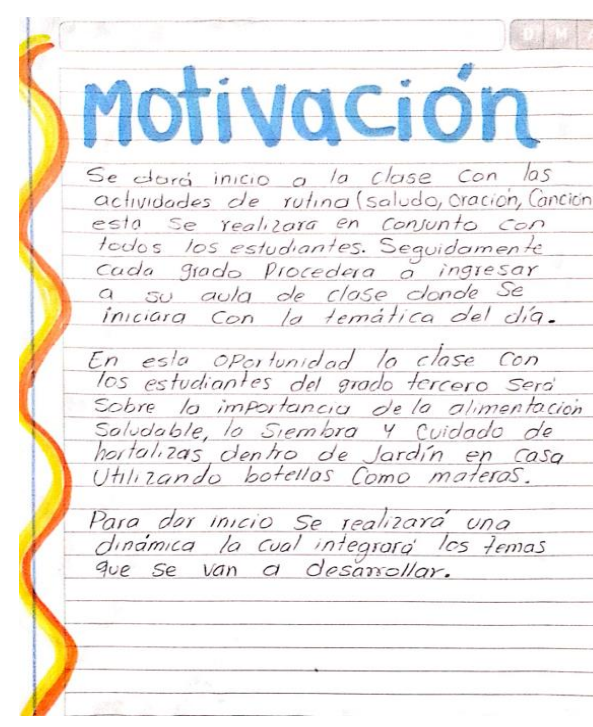 D M A
Motivación
Se dará inicio a la clase con las
actividades de rutina (saludo, Oración, Canción
esta se realizara en conjunto con
todos los estudiantes. Seguidamente
cada grado Procedera a ingresar
a su aula de clase donde Se
iniciara Con la temática del día.
En esta OPortunidad la clase Con
los estudiantes del grado tercero Será
Sobre la imPortancia de la alimentación
Saludable, la Siembra y Cuidado de
hortalizas dentro de Jardín en Casa
Utilizando botellas Como materas.
Para dar inicio Se realizará una
dinámica la cual integrará los temas
que se van a desarrollar.